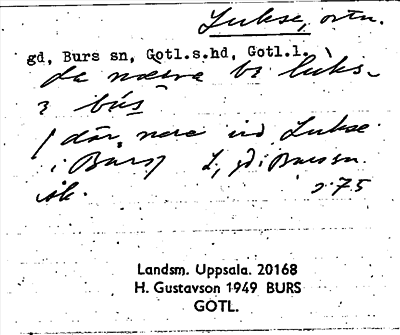 Lukse, ortn.
gd, Burs sn, Gotl.s.hd, Gotl.l.
da bi luks
i bús
(där nere vid Lukse
i Burs) L, gd i Burs sn.
s 75
Landsm. Uppsala. 20168
H. Gustavson 1949 BURS
GOTL.